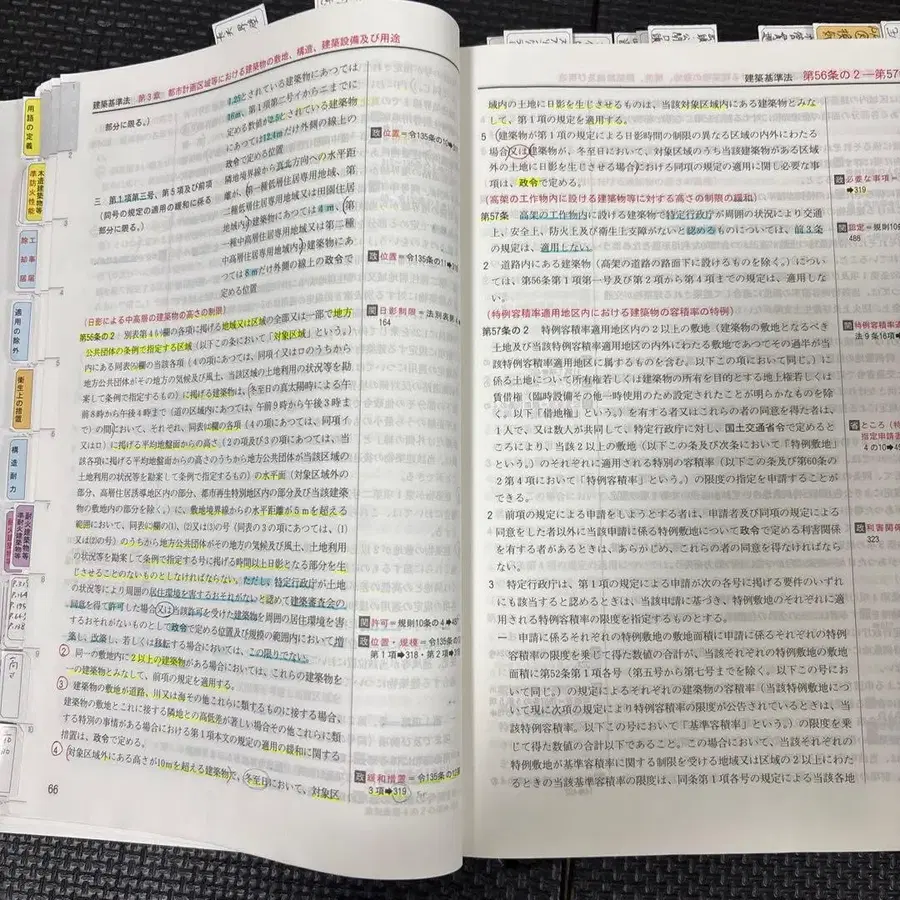 建築基準法 第3章 都市計画区域等における建築物の敷地、構造、建築設備及び用途
部分に限る。)
1.25とされている建築物にあつては
16m、第1項第二号イからニまでに
定める数値が2.5とされている建築物
にあつては12.4mだけ外側の線上の
政令で定める位置
政 位置=令135条の10
三 第1項第三号、第5項及び前項
(同号の規定の適用の緩和に係る
部分に限る。)
隣地境界線から真北方向への水平距
離が、第一種低層住居専用地域、第
二種低層住居専用地域又は田園住居
地域内の建築物にあつては4m、第
一種中高層住居専用地域又は第二種
中高層住居専用地域内の建築物にあ
つては8mだけ外側の線上の政令で
定める位置
政 位置=令135条の11
(日影による中高層の建築物の高さの制限)
第56条の2 別表第4(い)欄の各項に掲げる地域又は区域の全部又は一部で地方
公共団体の条例で指定する区域(以下この条において「対象区域」という。)
内にある同表(ろ)欄の当該各項(4の項にあつては、同項イ又はロのうちから
地方公共団体がその地方の気候及び風土、当該区域の土地利用の状況等を勘
案して条例で指定するもの)に掲げる建築物は、冬至日の真太陽時による午
前8時から午後4時まで(道の区域内にあつては、午前9時から午後3時ま
で)の間において、それぞれ、同表(は)欄の各項(4の項にあつては、同項イ
又はロ)に掲げる平均地盤面からの高さ(2の項及び3の項にあつては、当
該各項に掲げる平均地盤面からの高さのうちから地方公共団体が当該区域の
土地利用の状況等を勘案して条例で指定するもの)の水平面(対象区域外の
部分、高層住居誘導地区内の部分、都市再生特別地区内の部分及び当該建築
物の敷地内の部分を除く。)に、敷地境界線からの水平距離が5mを超える
範囲において、同表(に)欄の(1)、(2)又は(3)の号(同表の3の項にあつては、(1)
又は(2)の号)のうちから地方公共団体がその地方の気候及び風土、土地利用
の状況等を勘案して条例で指定する号に掲げる時間以上日影となる部分を生
じさせることのないものとしなければならない。ただし、特定行政庁が土地
の状況等により周囲の居住環境を害するおそれがないと認めて建築審査会の
同意を得て許可した場合又は当該許可を受けた建築物を周囲の居住環境を害
するおそれがないものとして政令で定める位置及び規模の範囲内において増
築し、改築し、若しくは移転する場合においては、この限りでない。
関 日影制限=法別表第4
164
関 許可=規則10条の4
政 位置・規模=令135条の
第1項➡318・第2項➡318
2 同一の敷地内に2以上の建築物がある場合においては、これらの建築物を
一の建築物とみなして、前項の規定を適用する。
3 建築物の敷地が道路、川又は海その他これらに類するものに接する場合、
建築物の敷地とこれに接する隣地との高低差が著しい場合その他これらに類
する特別の事情がある場合における第1項本文の規定の適用の緩和に関する
措置は、政令で定める。
4 対象区域外にある高さが10mを超える建築物で、冬至日において、対象区
政 緩和措置=令135条の
3項➡319
66
用語の定義
木造建築物等
準防火性能
工事届
除却届
適用の除外
衛生上の措置
構造耐力
耐火建築物等
準耐火建築物等
建築基準法 第56条の2―第57
域内の土地に日影を生じさせるものは、当該対象区域内にある建築物とみな
して、第1項の規定を適用する。
5 建築物が第1項の規定による日影時間の制限の異なる区域の内外にわたる
場合又は建築物が、冬至日において、対象区域のうち当該建築物がある区域
外の土地に日影を生じさせる場合における同項の規定の適用に関し必要な事
項は、政令で定める。
政 必要な事項=
➡319
(高架の工作物内に設ける建築物等に対する高さの制限の緩和)
第57条 高架の工作物内に設ける建築物で特定行政庁が周囲の状況により交通
上、安全上、防火上及び衛生上支障がないと認めるものについては、前3条
の規定は、適用しない。
関 認定=規則10
486
2 道路内にある建築物(高架の道路の路面下に設けるものを除く。)につい
ては、第56条第1項第一号及び第2項から第4項までの規定は、適用しな
い。
(特例容積率適用地区内における建築物の容積率の特例)
第57条の2 特例容積率適用地区内の2以上の敷地(建築物の敷地となるべき
土地及び当該特例容積率適用地区の内外にわたる敷地であつてその過半が当
該特例容積率適用地区に属するものを含む。以下この項において同じ。)に
係る土地について所有権若しくは建築物の所有を目的とする地上権若しくは
賃借権(臨時設備その他一時使用のため設定されたことが明らかなものを除
く。以下「借地権」という。)を有する者又はこれらの者の同意を得た者は、
1人で、又は数人が共同して、特定行政庁に対し、国土交通省令で定めると
ころにより、当該2以上の敷地(以下この条及び次条において「特例敷地」
という。)のそれぞれに適用される特別の容積率(以下この条及び第60条の
2第4項において「特例容積率」という。)の限度の指定を申請することが
できる。
関 特例容積率適
法9条16項
省 ところ(特
指定申請書
4の10➡4
2 前項の規定による申請をしようとする者は、申請者及び同項の規定による
同意をした者以外に当該申請に係る特例敷地について政令で定める利害関係
を有する者があるときは、あらかじめ、これらの者の同意を得なければなら
ない。
政 利害関係
323
3 特定行政庁は、第1項の規定による申請が次の各号に掲げる要件のいずれ
にも該当すると認めるときは、当該申請に基づき、特例敷地のそれぞれに適
用される特例容積率の限度を指定するものとする。
一 申請に係るそれぞれの特例敷地の敷地面積に申請に係るそれぞれの特例
容積率の限度を乗じて得た数値の合計が、当該それぞれの特例敷地の敷地
面積に第52条第1項各号(第五号から第七号までを除く。以下この号にお
いて同じ。)の規定によるそれぞれの建築物の容積率(当該特例敷地につ
いて現に次項の規定により特例容積率の限度が公告されているときは、当
該特例容積率。以下この号において「基準容積率」という。)の限度を乗
じて得た数値の合計以下であること。この場合において、当該それぞれの
特例敷地が基準容積率に関する制限を受ける地域又は区域の2以上にわた
るときの当該基準容積率の限度は、同条第1項各号の規定による当該各地